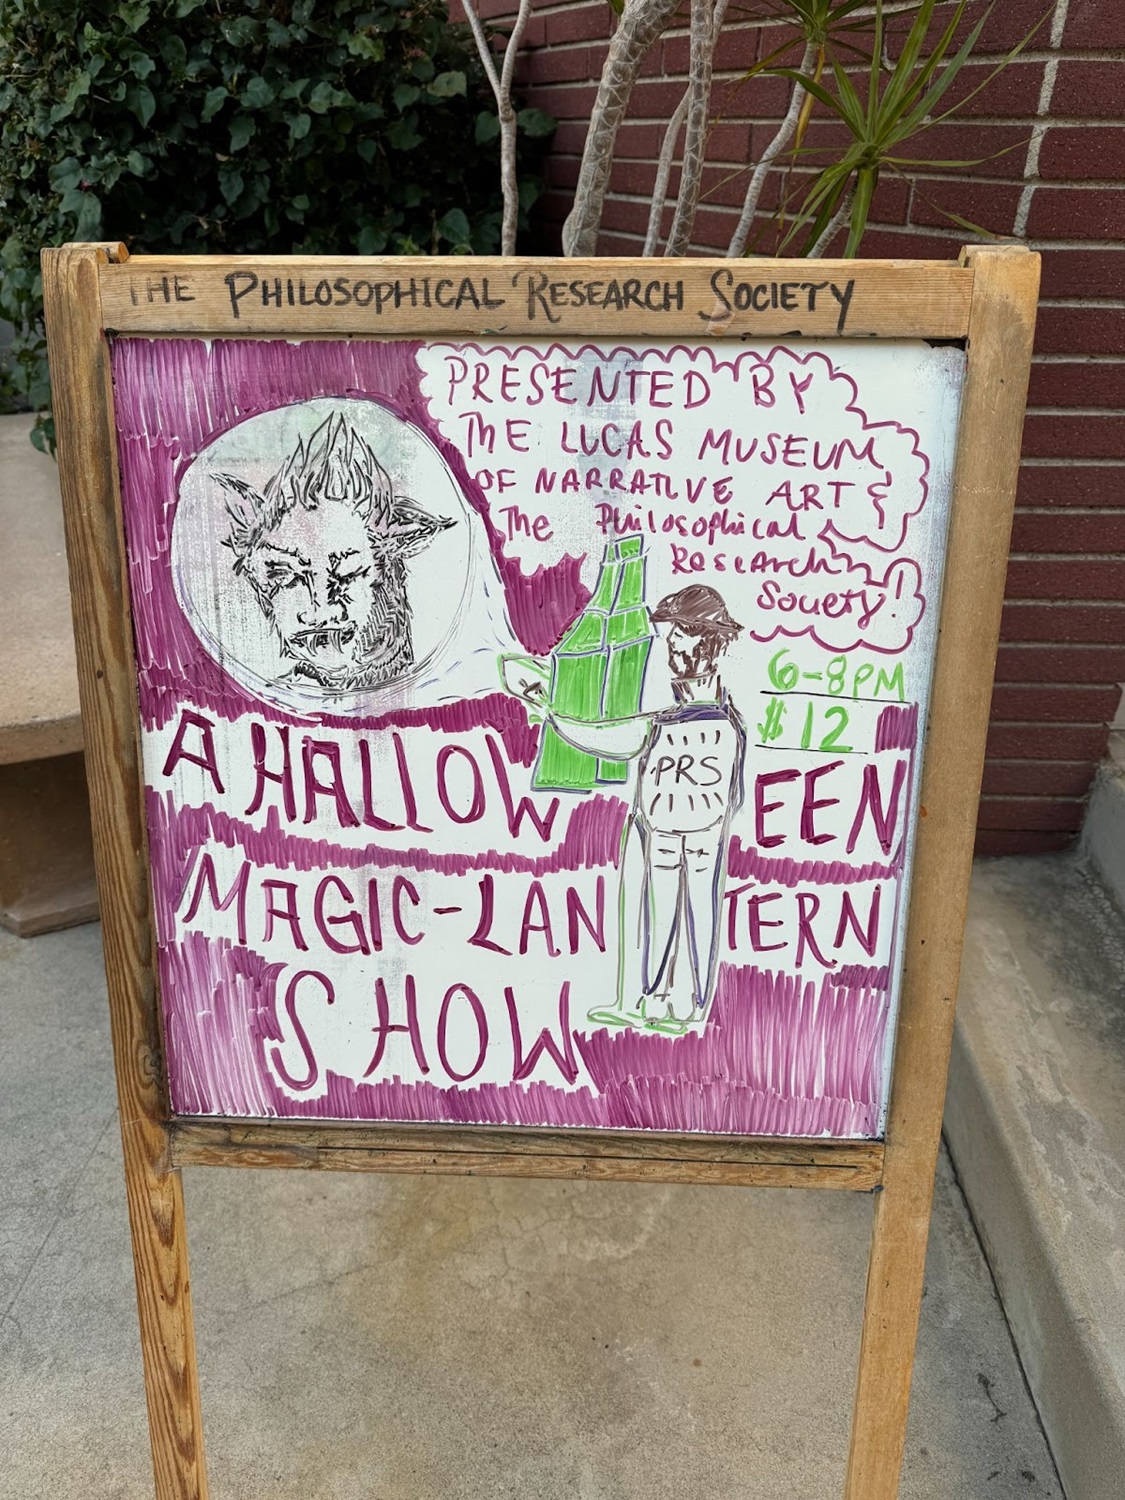 THE PHILOSOPHICAL RESEARCH SOCIETY
PRESENTED BY
THE LUCAS MUSEUM
OF NARRATIVE ART &
The Philosophical
Research
Society!
6-8PM
$12
PRS
A HALLOWEEN
MAGIC-LANTERN
SHOW